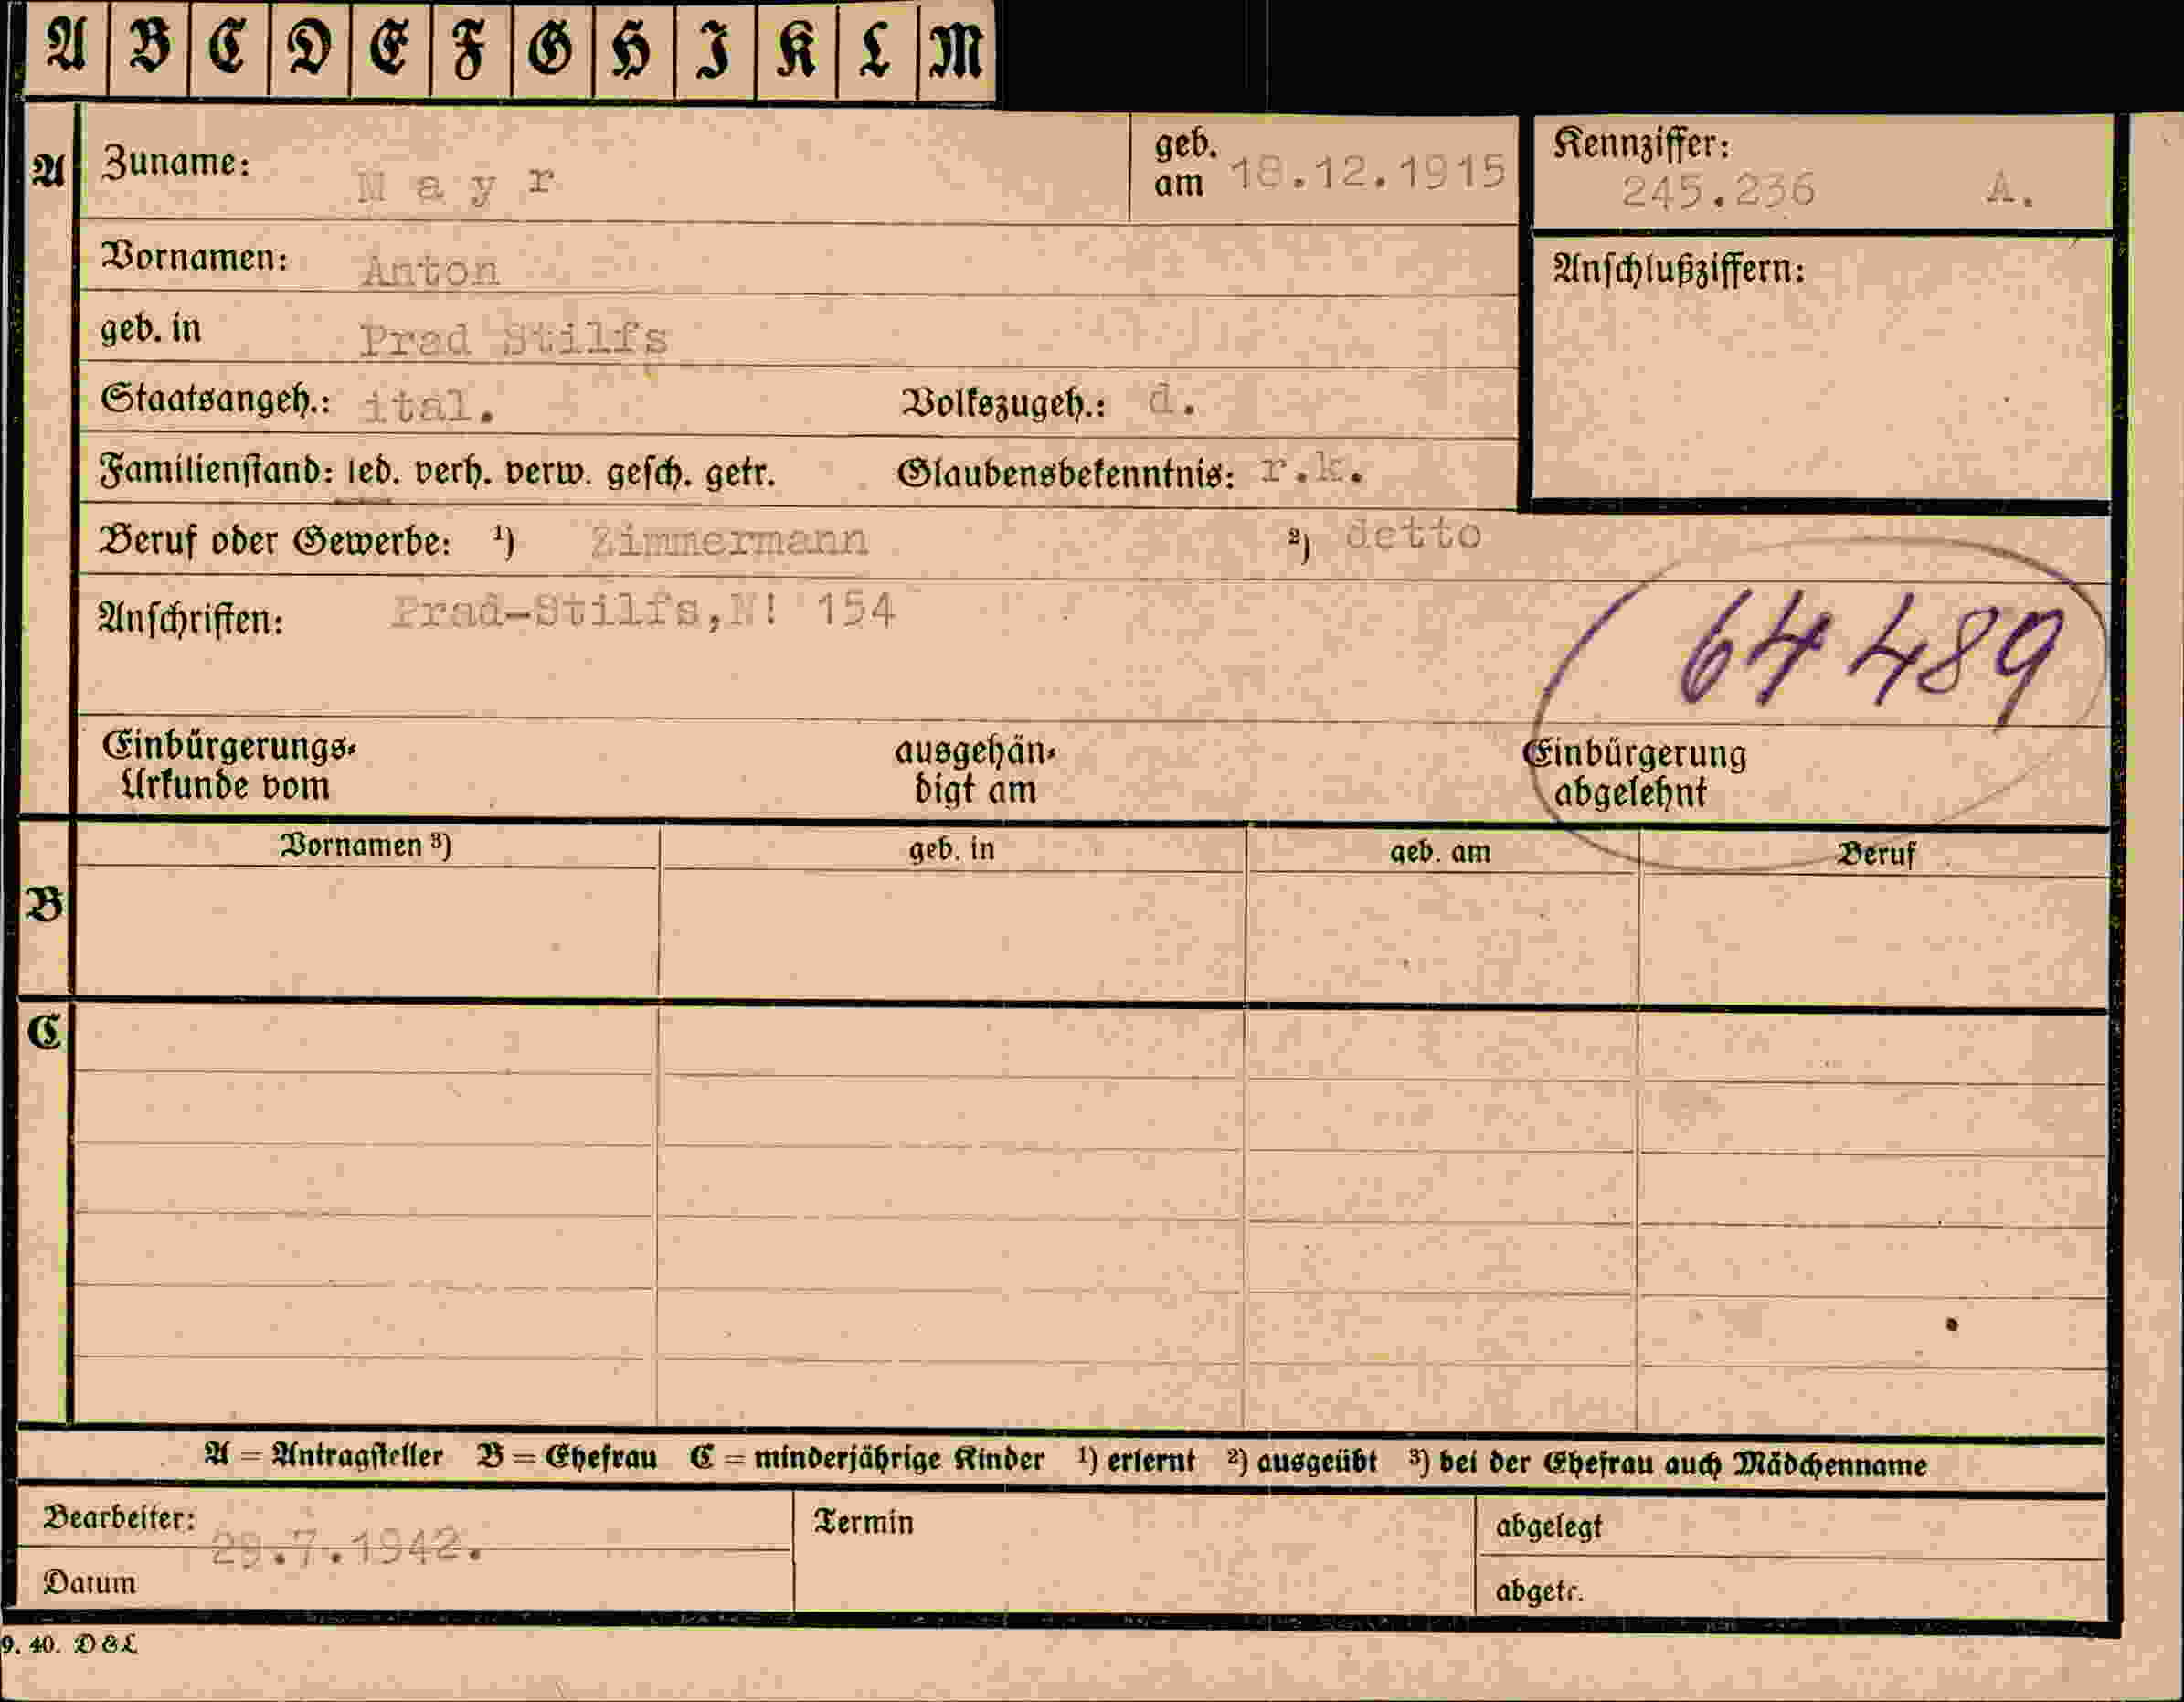 A B C D E F G H I K L M
A Zuname: Mayr geb. am 18.12.1915 Kennziffer: 245.236 A.
Vornamen: Anton Anschlußziffern:
geb. in Prad Stilfs
Staatsangeh.: ital. Volkszugeh.: d.
Familienstand: led. verh. verw. gesch. getr. Glaubensbekenntnis: r.k.
Beruf oder Gewerbe: ¹) Zimmermann ²) detto
Anschriften: Prad-Stilfs,N! 154
64489
Einbürgerungs- ausgehän- Einbürgerung
Urkunde vom digt am abgelehnt
Vornamen ³) geb. in geb. am Beruf
B
C
A = Antragsteller B = Ehefrau C = minderjährige Kinder ¹) erlernt ²) ausgeübt ³) bei der Ehefrau auch Mädchenname
Bearbeiter: 29.7.1942. Termin abgelegt
Datum abgetr.
9. 40. D&L